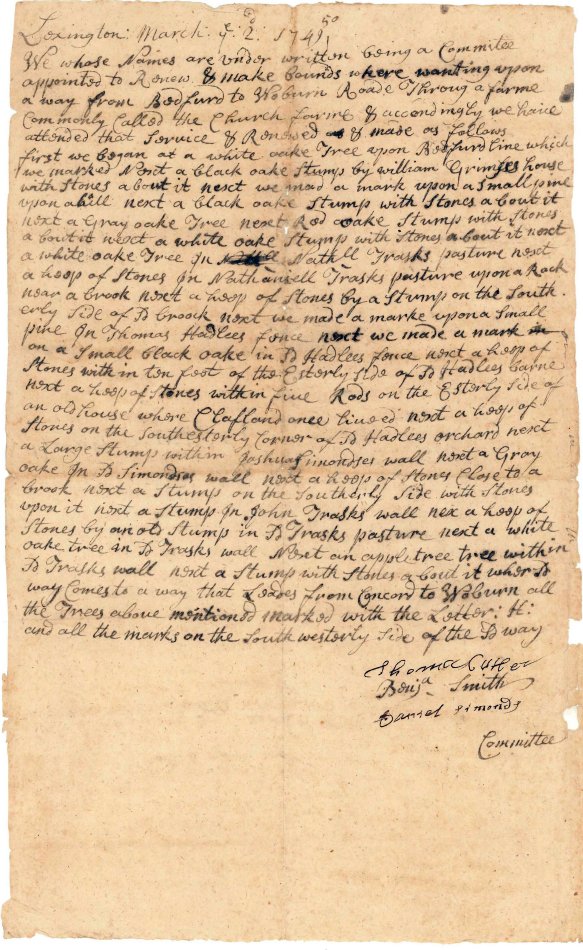 Lexington: March: ye: 2d: 1749/50
We whose Names are under written being a Committee
appointed to Renew & make bounds where wanting upon
a way from Bedfurd to Woburn Roade Throug a farme
Commonly Called the Church farme & accordingly we have
attended that Service & Renewed & made as follows
first we began at a white oake Tree upon Bedfurd line which
we marked Next a black oake Stump by william Grimses house
with Stones a bout it next we mad a mark upon a Small pine
upon a hill next a black oake Stump with Stones a bout it
next a Gray oake Tree next Red oake Stump with Stones
a bout it next a white oake Stump with Stones a bout it next
a white oake Tree in Nathll Trasks pasture next
a heep of Stones in Nathaniell Trasks pasture upon a Rock
near a brook next a heep of Stones by a Stump on the South
erly Side of sd broock next we made a marke upon a Small
pine in Thomas Hadlees fence next we made a mark
on a Small black oake in sd Hadlees fence next a heep of
Stones with in ten feet of the Esterly Side of sd Hadlees barne
next a heep of Stones within five Rods on the Esterly Side of
an old house where Clafland once lived next a heep of
Stones on the Southesterly Corner of sd Hadlees orchard next
a Large Stump within Joshua Simondses wall next a Gray
oake in sd Simondses wall next a heep of Stones Close to a
brook next a Stump on the Southerly Side with Stones
upon it next a Stump in John Trasks wall nex a heep of
Stones by an old Stump in sd Trasks pasture next a white
oake tree in sd Trasks wall Next an appletree tree within
sd Trasks wall next a Stump with Stones a bout it wher sd
way Comes to a way that Leades from Concord to Woburn all
the Trees above mentioned marked with the Letter: H:
and all the marks on the South westerly Side of the sd way
Thomas Cutler
Benja Smith
Daniel Simonds
Committee